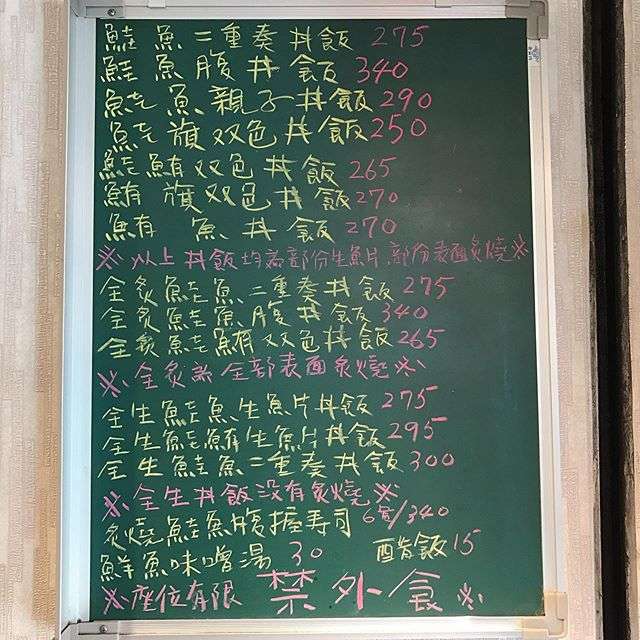 鮭魚二重奏丼飯 275
鮭魚腹丼飯 340
鮭魚親子丼飯 290
鮭旗双色丼飯 250
鮭鮪双色丼飯 265
鮪旗双色丼飯 270
鮪魚丼飯 270
※以上丼飯均為部份生魚片.部份表面炙燒※
全炙鮭魚二重奏丼飯 275
全炙鮭魚腹丼飯 340
全炙鮭鮪双色丼飯 265
※全炙為全部表面炙燒※
全生鮭魚生魚片丼飯 275
全生鮭鮪生魚片丼飯 295
全生鮭魚二重奏丼飯 300
※全生丼飯没有炙燒※
炙燒鮭魚腹握寿司 6貫/340
鮮魚味噌湯 30 醋飯 15
※座位有限 禁外食※